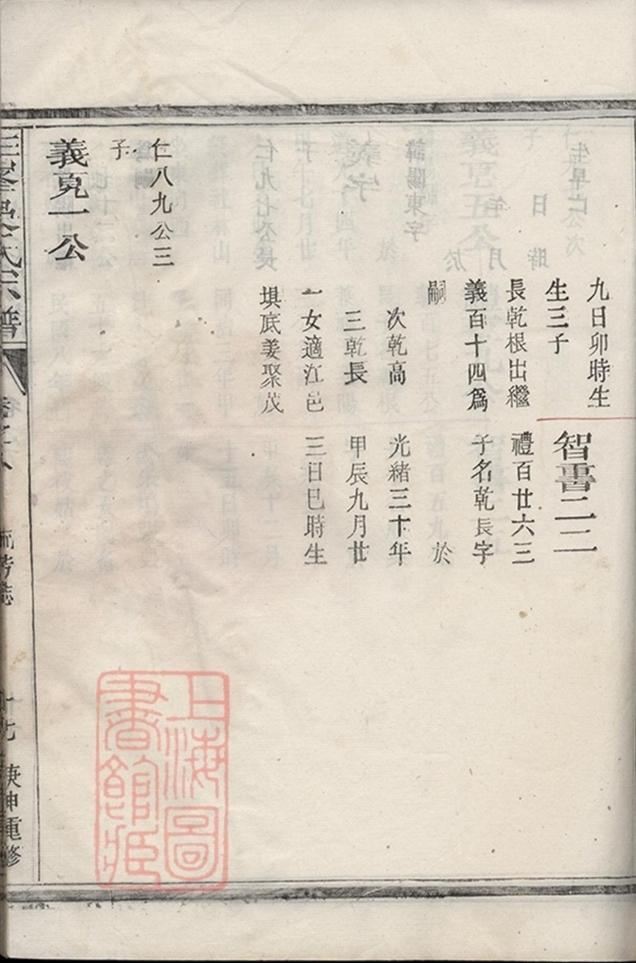 九日卯時生
生三子
長乾根出繼
義百十四爲
嗣
次乾高
三乾長
一女適江邑
埧底姜聚茂
智書二二
禮百廿六三
子名乾長字
於
光緒三十年
甲辰九月廿
三日巳時生
仁八九公三
子
義克一公
吳氏宗譜
卷之八
流芳誌
十七
庚申重修
上海圖
書館藏